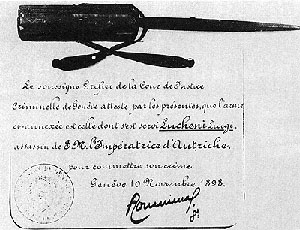 Le soussigné Greffier de la Cour de Justice
Criminelle de Genève atteste par les présentes, que l'arme
ci-annexée est celle dont s'est servi Lucheni Luigi
assassin de S. M. l'Impératrice d'Autriche
pour commettre son crime
Genève 10 Novembre 1898.